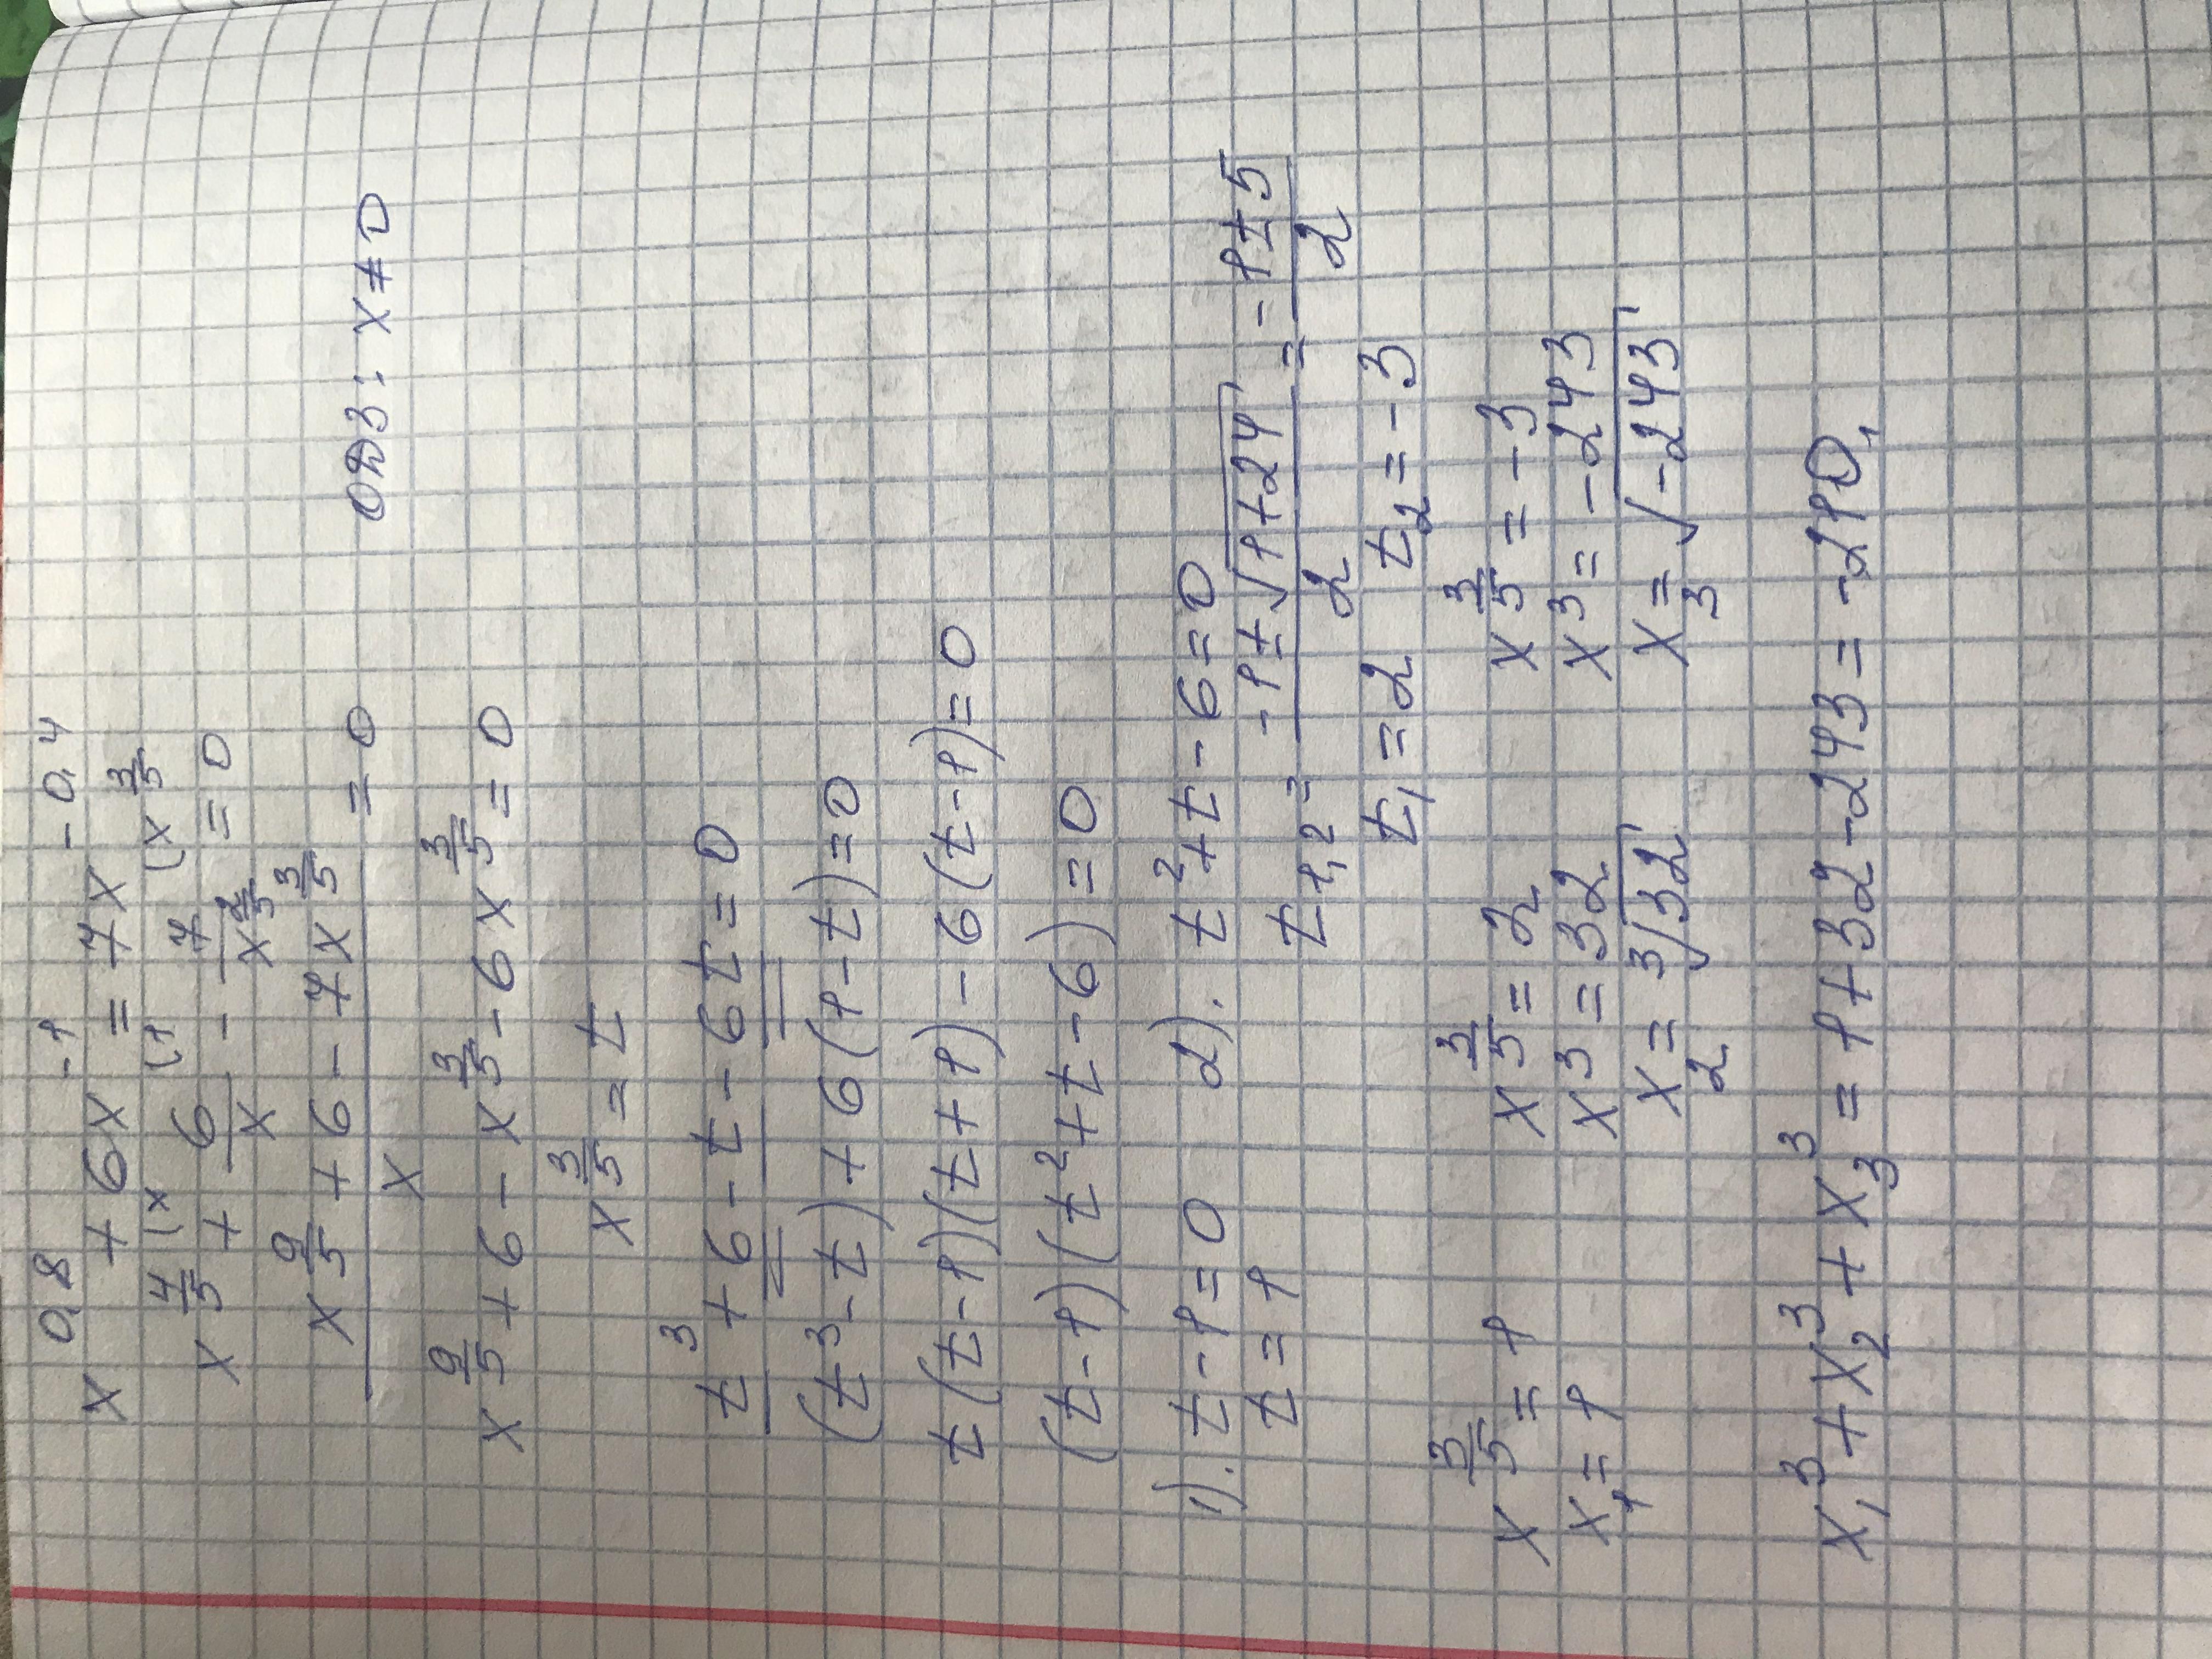 x^0,8 + 6x^-1 = 7x^-0,4
x^4/5 (x + 6/x (1 - 7/x^2/5 (x^3/5 = 0
x^9/5 + 6 - 7x^3/5 / x = 0 ОДЗ: x ≠ 0
x^9/5 + 6 - x^3/5 - 6x^3/5 = 0
x^3/5 = t
t^3 + 6 - t - 6t = 0
(t^3 - t) + 6(1 - t) = 0
t(t-1)(t+1) - 6(t-1) = 0
(t-1)(t^2 + t - 6) = 0
1). t - 1 = 0 2). t^2 + t - 6 = 0
t = 1 t1,2 = -1 ± √1+24 / 2 = -1 ± 5 / 2
t1 = 2 t2 = -3
x^3/5 = 1 x^3/5 = 2 x^3/5 = -3
x1 = 1 x^3 = 32 x^3 = -243
x2 = 3√32 x3 = √-243
x1^3 + x2^3 + x3^3 = 1 + 32 - 243 = -210,